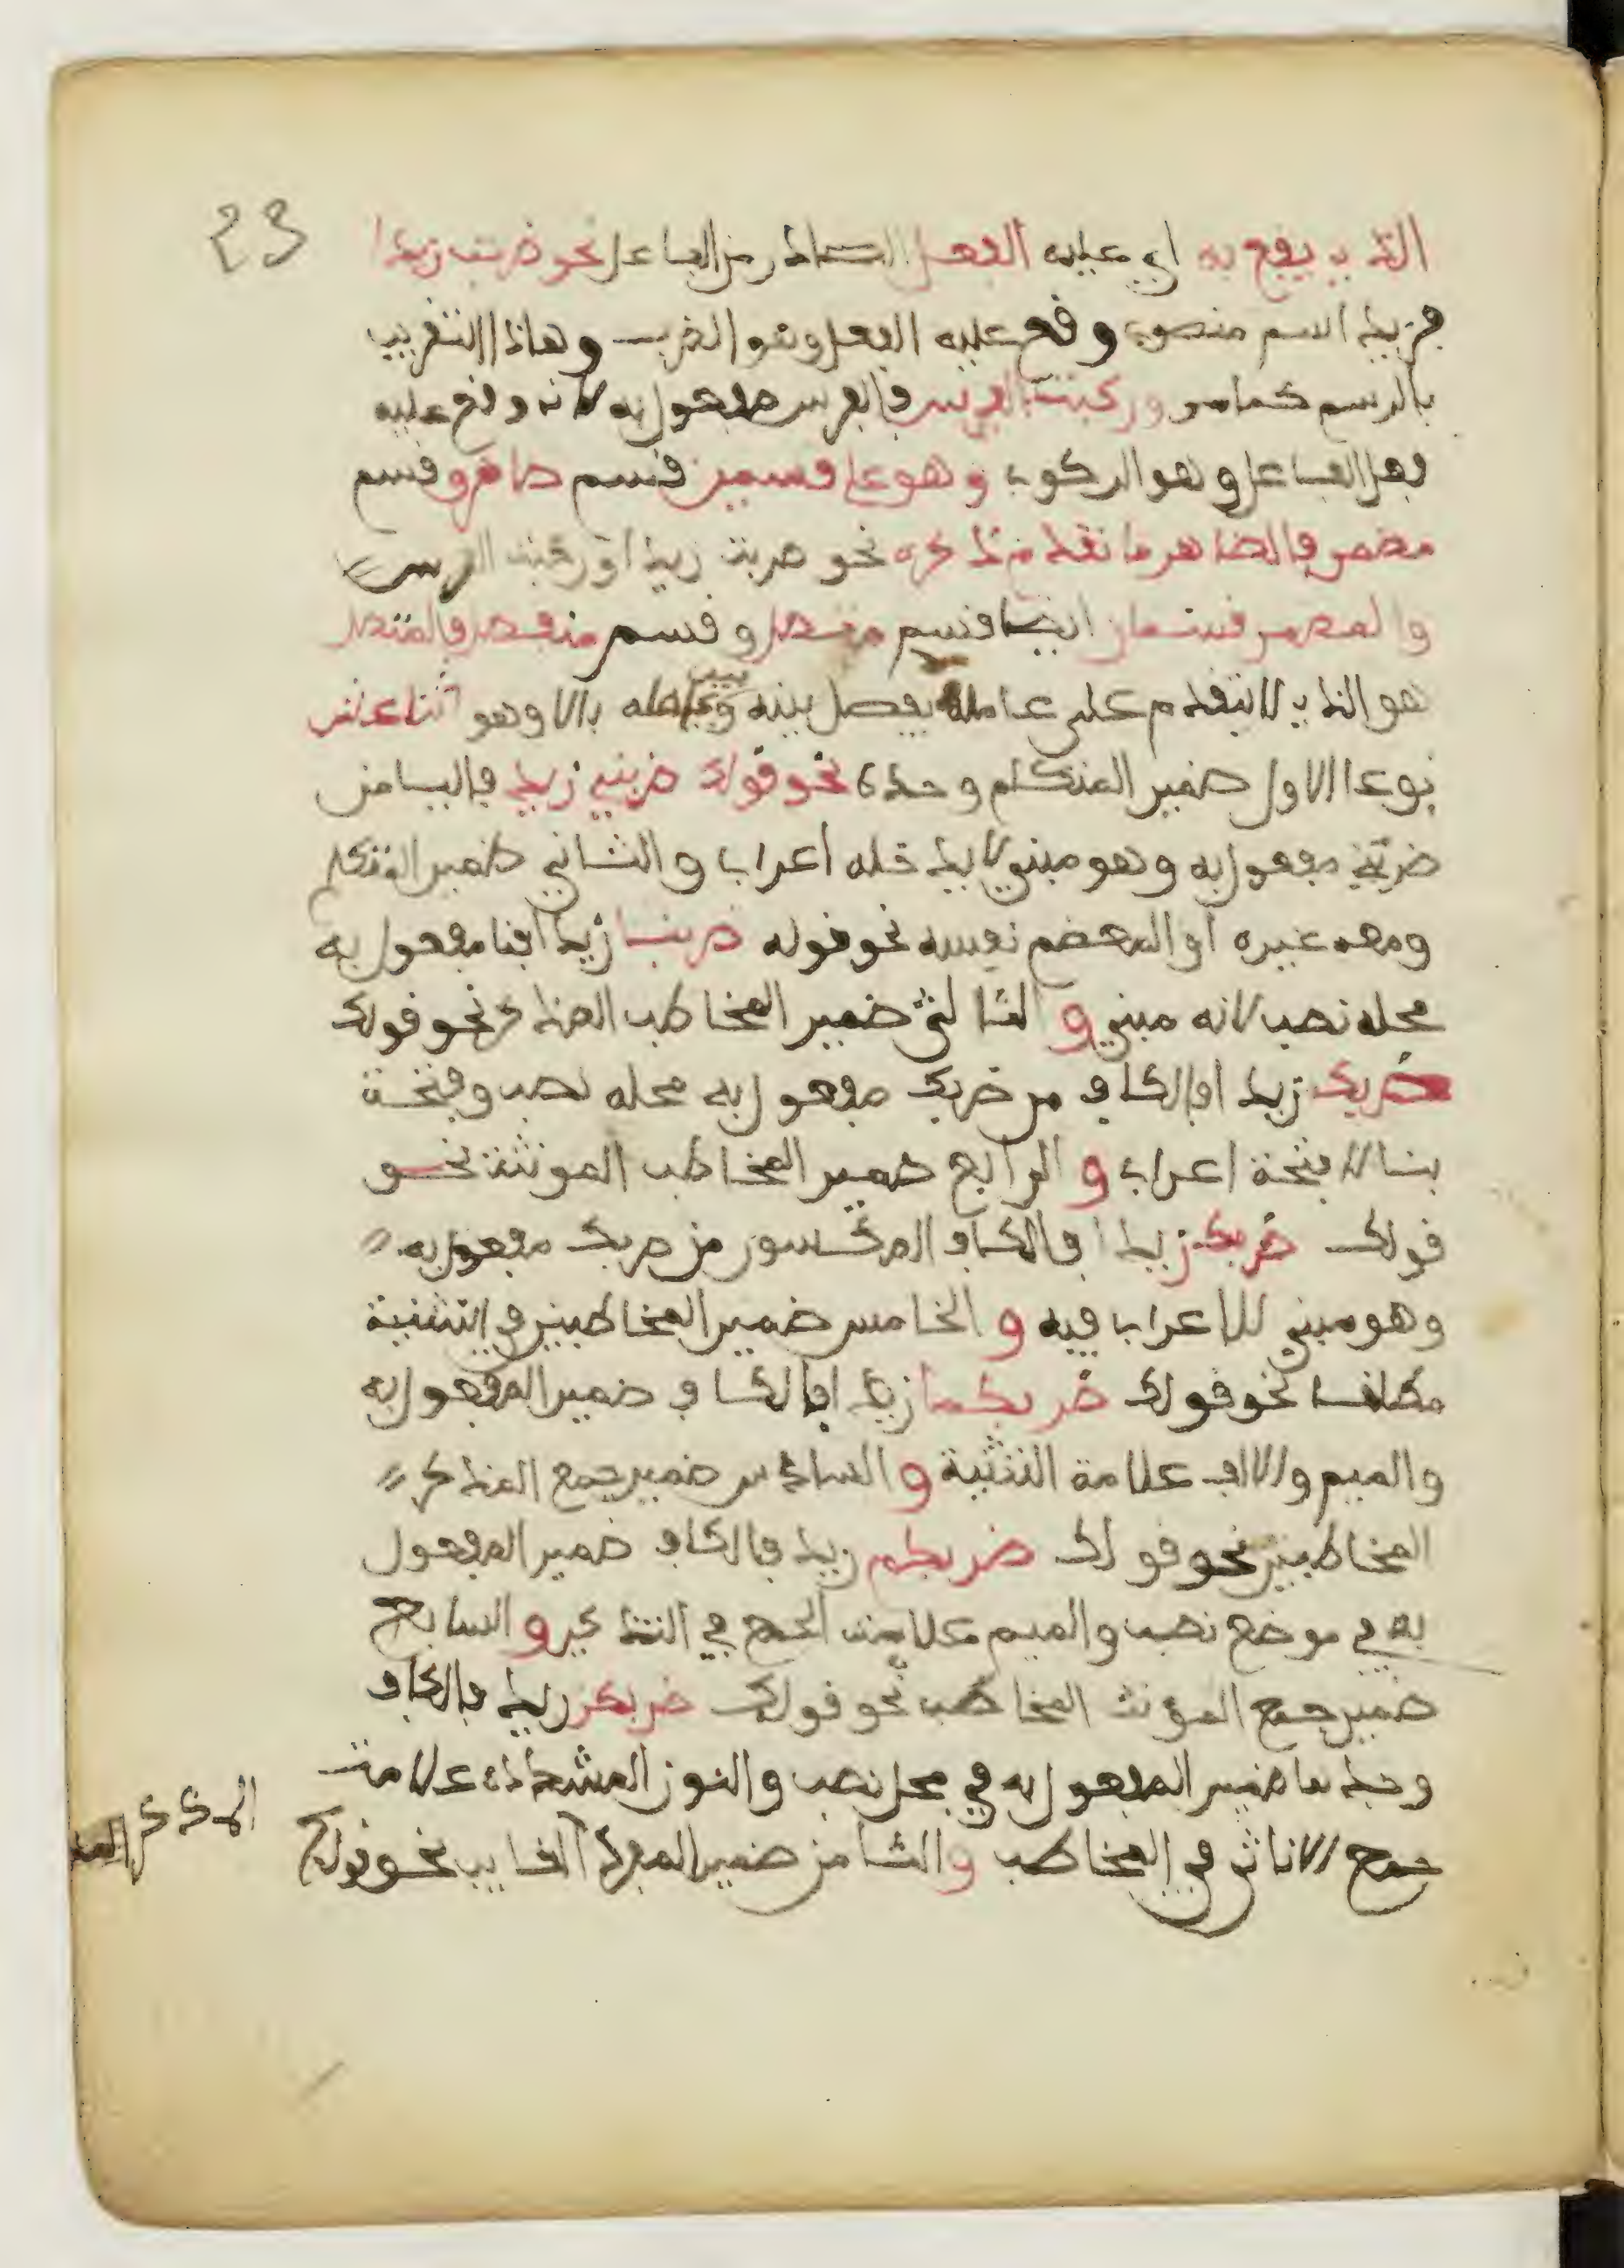 23
الذي يقع به اي عليه الفعل الصادر من الفاعل نحو ضربت زيدا
فزيد اسم منصوب وقع عليه الفعل وهو الضرب وهاذا التقريب
بالرسم كما مر وركبت الفرس فالفرس مفعول به لانه وقع عليه
فعل الفاعل وهو الركوب وهو على قسمين قسم ظاهر وقسم
مضمر فالظاهر ما تقدم ذكره نحو ضربت زيدا او ركبت الفرس
والمضمر قسمان ايضا قسم متصل وقسم منفصل فالمتصل
هو الذي لا يتقدم على عامله يفصل بينه وبين عامله بالا وهو اثنا عشر
نوعا الاول ضمير المتكلم وحده نحو قولك ضربني زيد فاليا من
ضربني مفعول به وهو مبني لا يدخله اعراب والثاني ضمير المتكلم
ومعه غيره او المعضم نفسه نحو قوله ضربنا زيد افنا مفعول به
محله نصب لانه مبني و الثالث ضمير المخاطب المذكر نحو قولك
ضربك زيد افالكاف من ضربك مفعول به محله نصب وفتحة
بنا لا فتحة اعراب و الرابع ضمير المخاطب المونثة نحو
قولك ضربك زيد افالكاف المكسور من ضربك مفعول به
وهو مبني للاعراب فيه و الخامس ضمير المخاطبين في التثنية
مطلقا نحو قولك ضربكما زيد افالكاف ضمير المفعول به
والميم والالف علامة التثنية و السادس ضمير جمع المذكر
المخاطبين نحو قولك ضربكم زيد فالكاف ضمير المفعول
به في موضع نصب والميم علامت الجمع في التذكير و السابع
ضمير جمع المؤنث المخاطب نحو قولك ضربكن زيد فالكاف
وحدها ضمير المفعول به في محل نصب والنون المشددة علامت
جمع الاناث في المخاطب والثامن ضمير المفرد الغايب نحو قولك